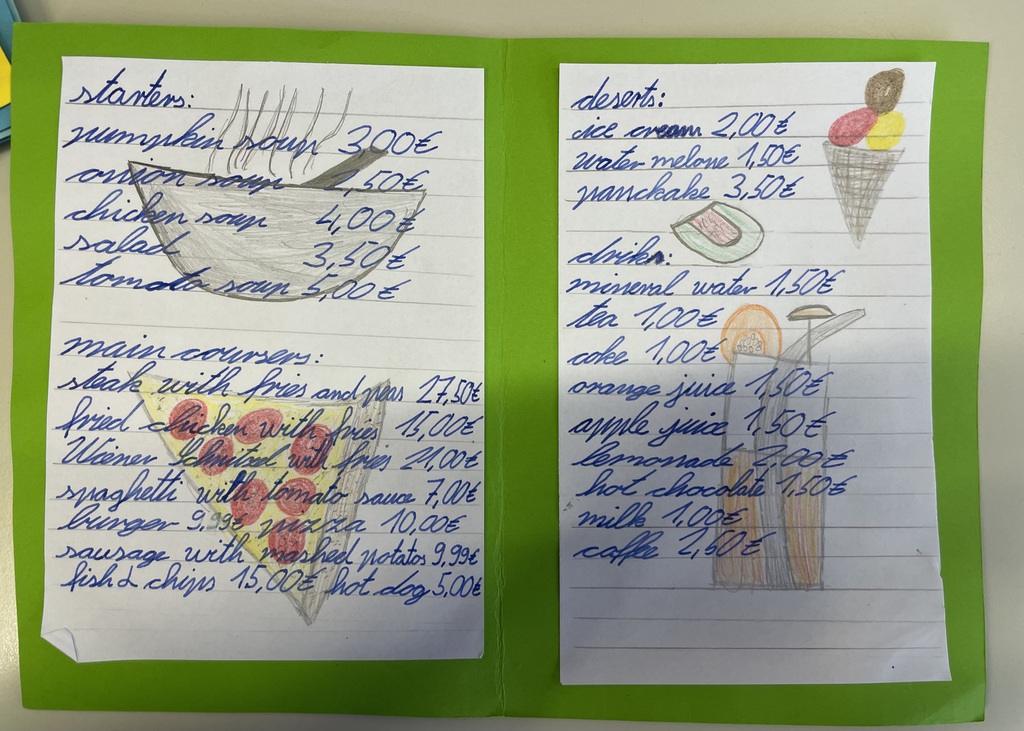 starters:
pumpkin soup 3,00€
onion soup 2,50€
chicken soup 4,00€
salad 3,50€
tomato soup 5,00€
main coursers:
steak with fries and peas 17,50€
fried chicken with fries 15,00€
Wiener Schnitzel with fries 21,00€
spaghetti with tomato sauce 7,00€
burger 9,99€ pizza 10,00€
sausage with mashed potatos 9,99€
fish & chips 15,00€ hot dog 5,00€
deserts:
ice cream 2,00€
water melone 1,50€
panckake 3,50€
drikn:
mineral water 1,50€
tea 1,00€
coke 1,00€
orange juice 1,50€
apple juice 1,50€
lemonade 2,00€
hot chocolate 1,50€
milk 1,00€
caffee 2,50€